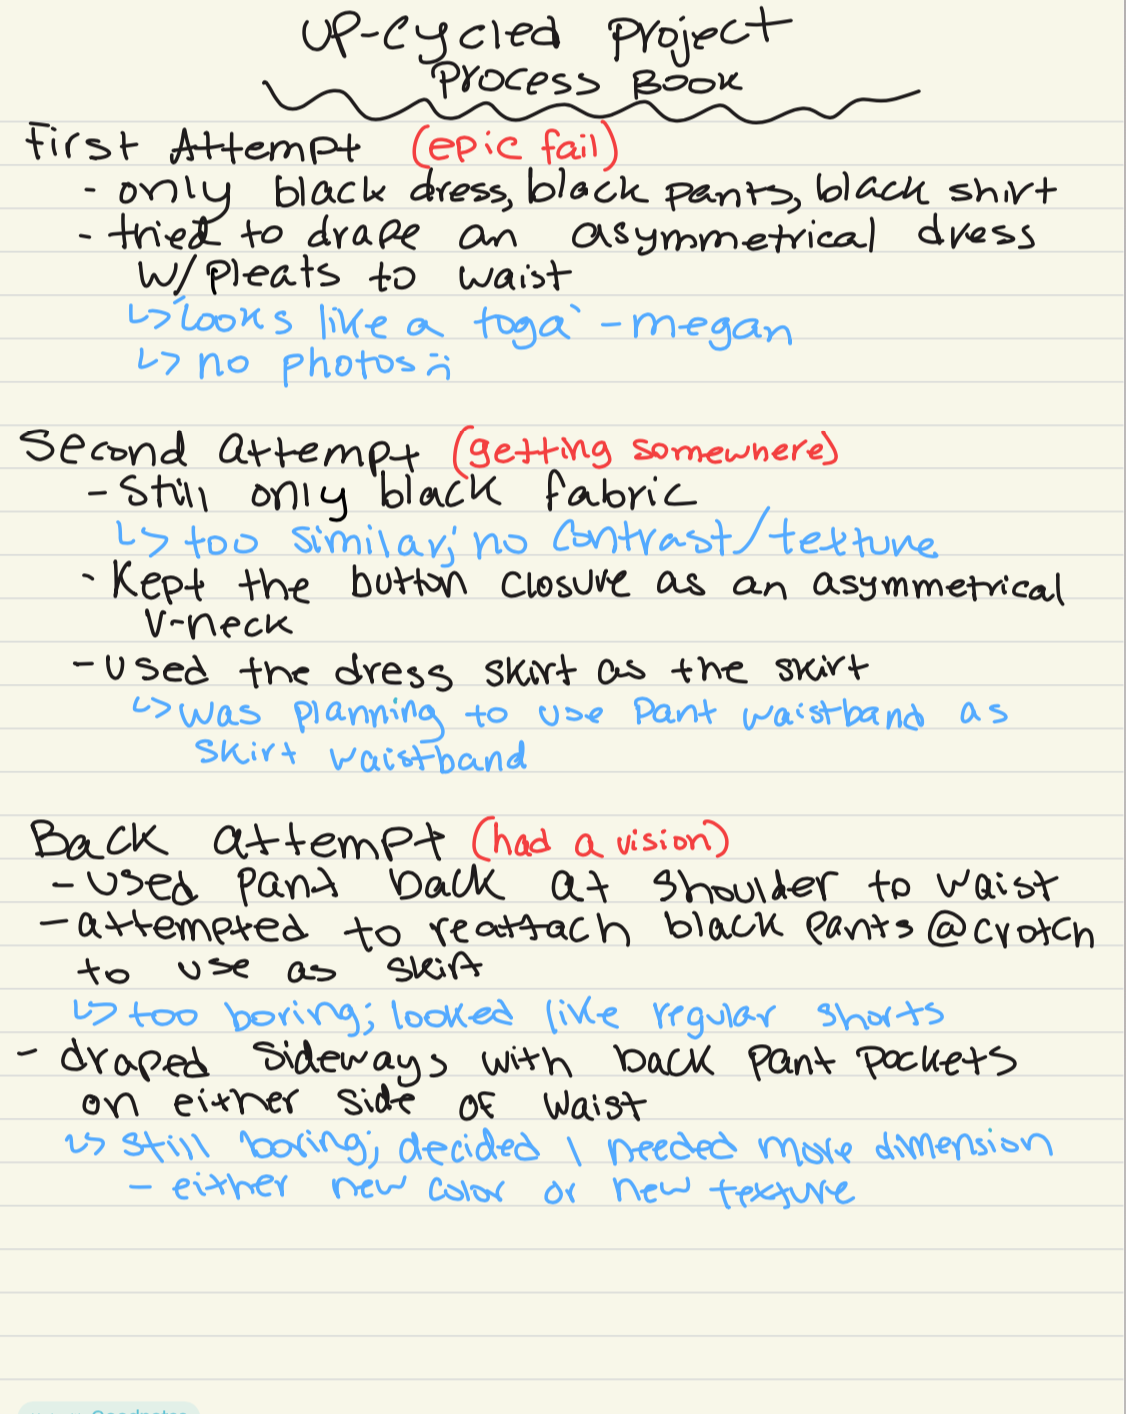 UP-Cycled Project
Process Book
First Attempt (epic fail)
- only black dress, black pants, black shirt
- tried to drape an asymmetrical dress
w/pleats to waist
↳"looks like a toga" - megan
↳ no photos :(
Second attempt (getting somewhere)
- Still only black fabric
↳ too similar; no contrast/texture
- Kept the button closure as an asymmetrical
V-neck
- used the dress skirt as the skirt
↳ was planning to use pant waistband as
skirt waistband
Back attempt (had a vision)
- used pant back at shoulder to waist
- attempted to reattach black pants @ crotch
to use as skirt
↳ too boring; looked like regular shorts
- draped sideways with back pant pockets
on either side of waist
↳ still boring; decided I needed more dimension
- either new color or new texture